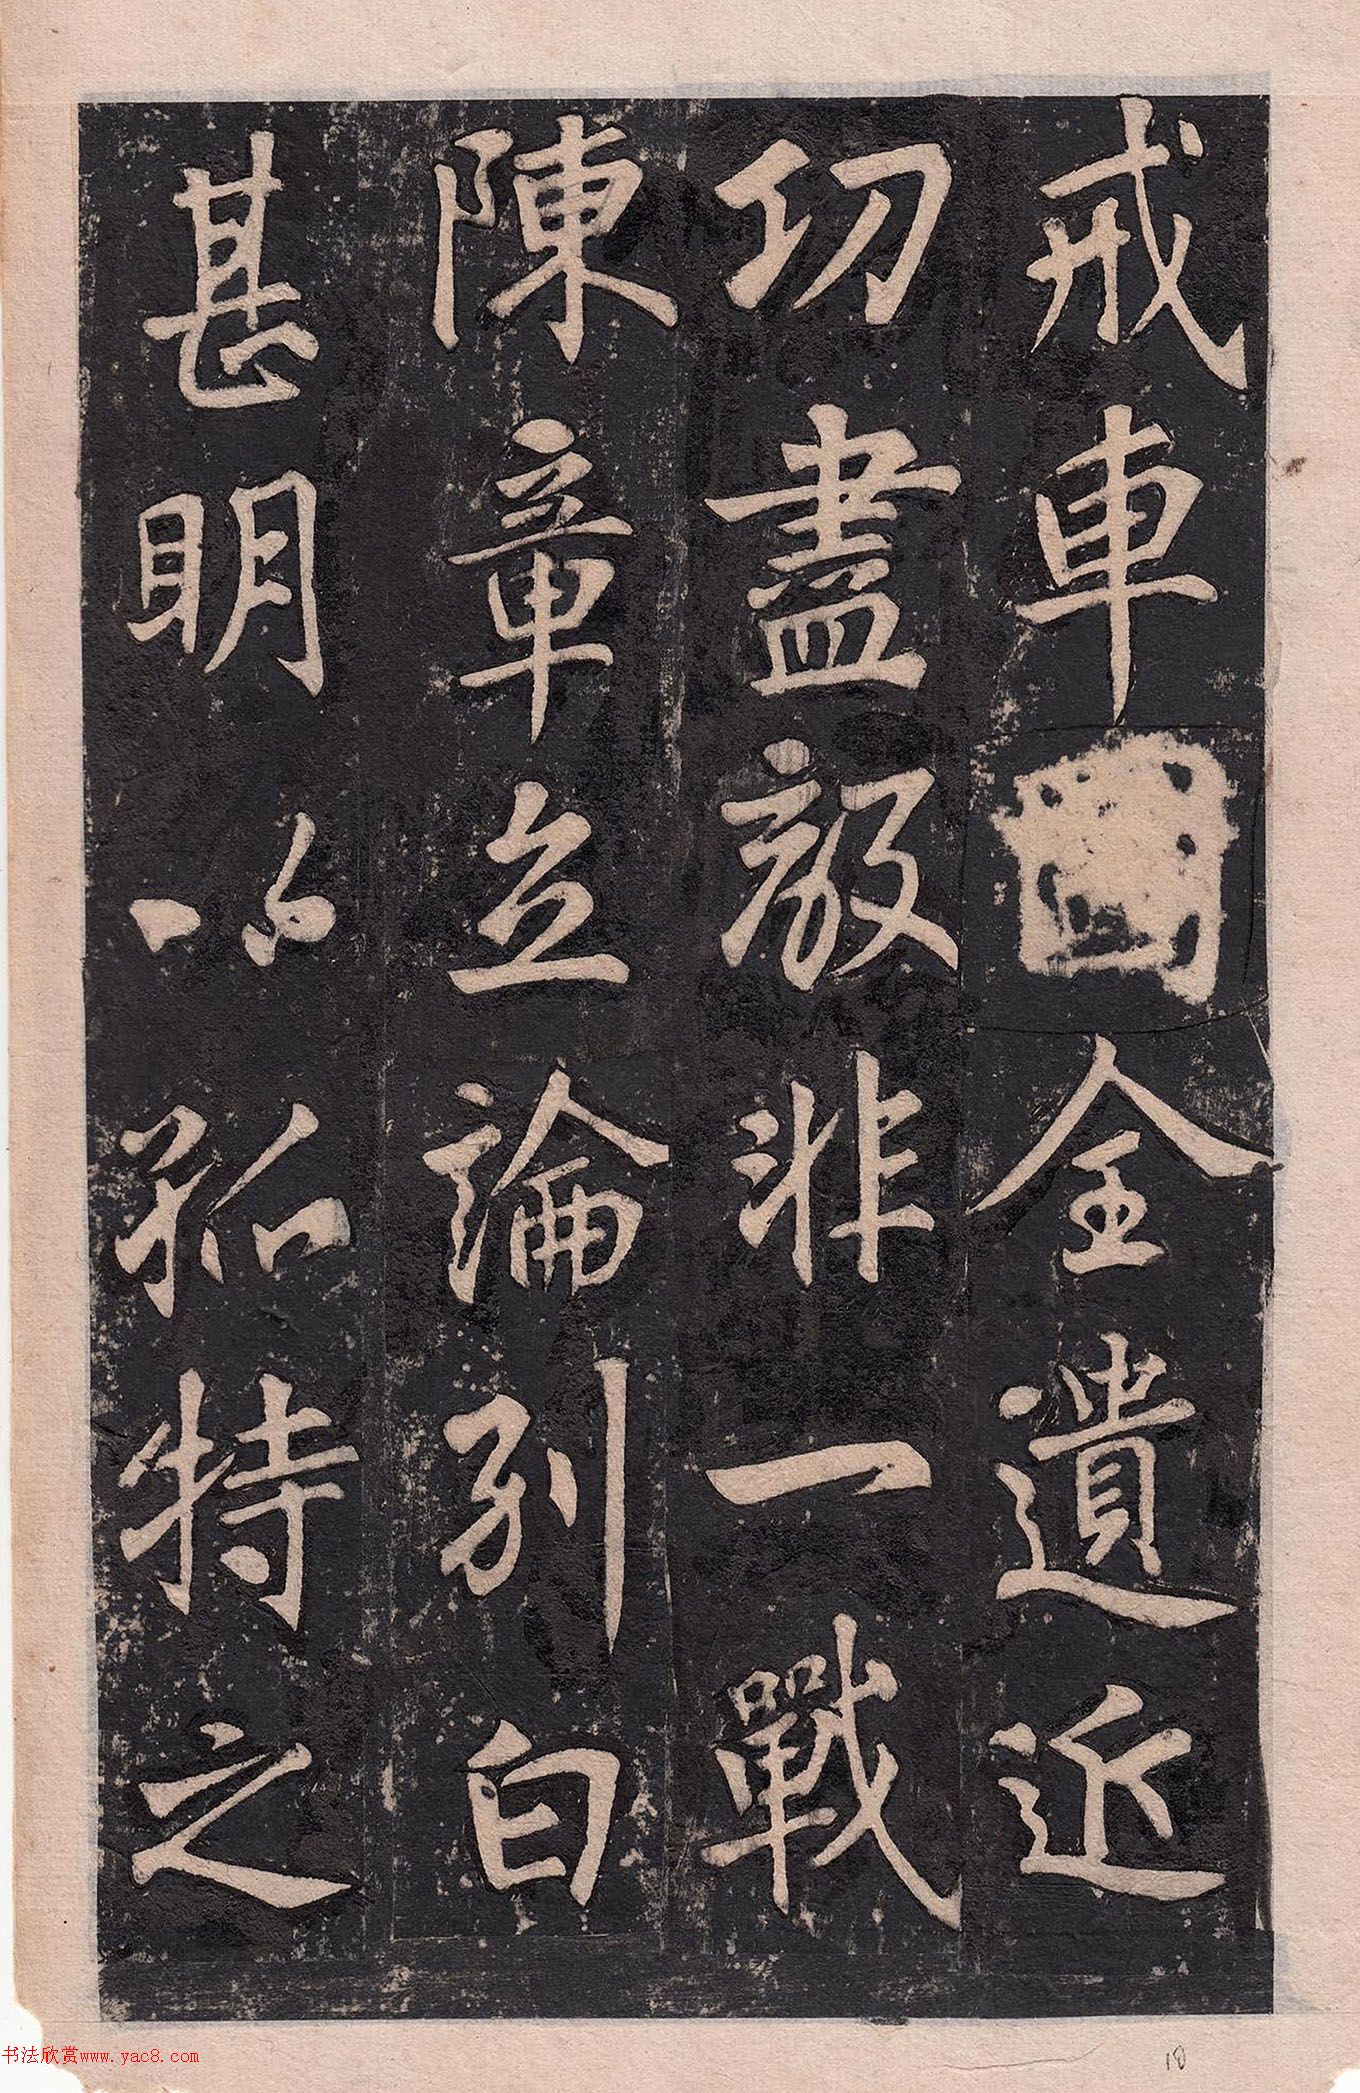 戒車全遺近
功盡毀非一戰
陳章立論列白
甚明以孤特之
书法欣赏www.yac8.com
18